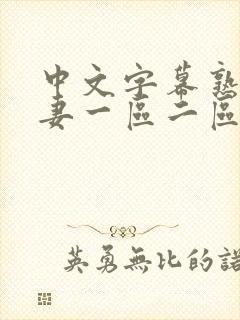 中文字幕熟
妻一區二區
英勇無比的諾